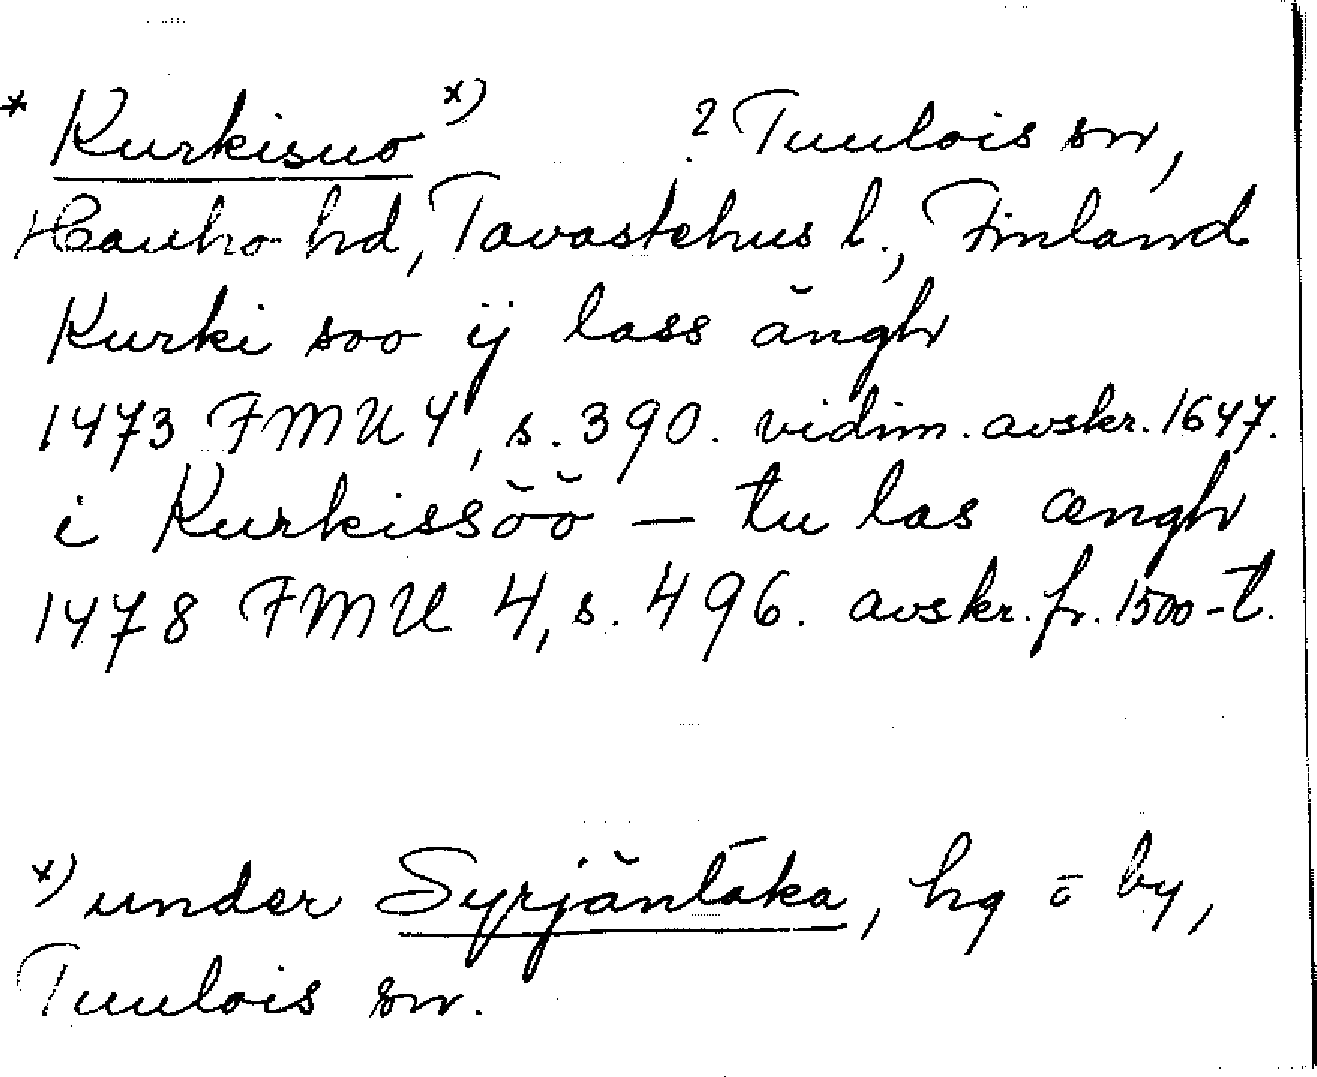 * Kurkisuo x) ? Tuulois sn,
Hauho hd, Tavastehus l., Finland
Kurki soo ij lass ängh
1473 FMU 4, s. 390. vidim. avskr. 1647.
i Kurkissöö – tu las ængh
1478 FMU 4, s. 496. avskr. fr. 1500-t.
x) under Syrjäntaka, hg o by,
Tuulois sn.